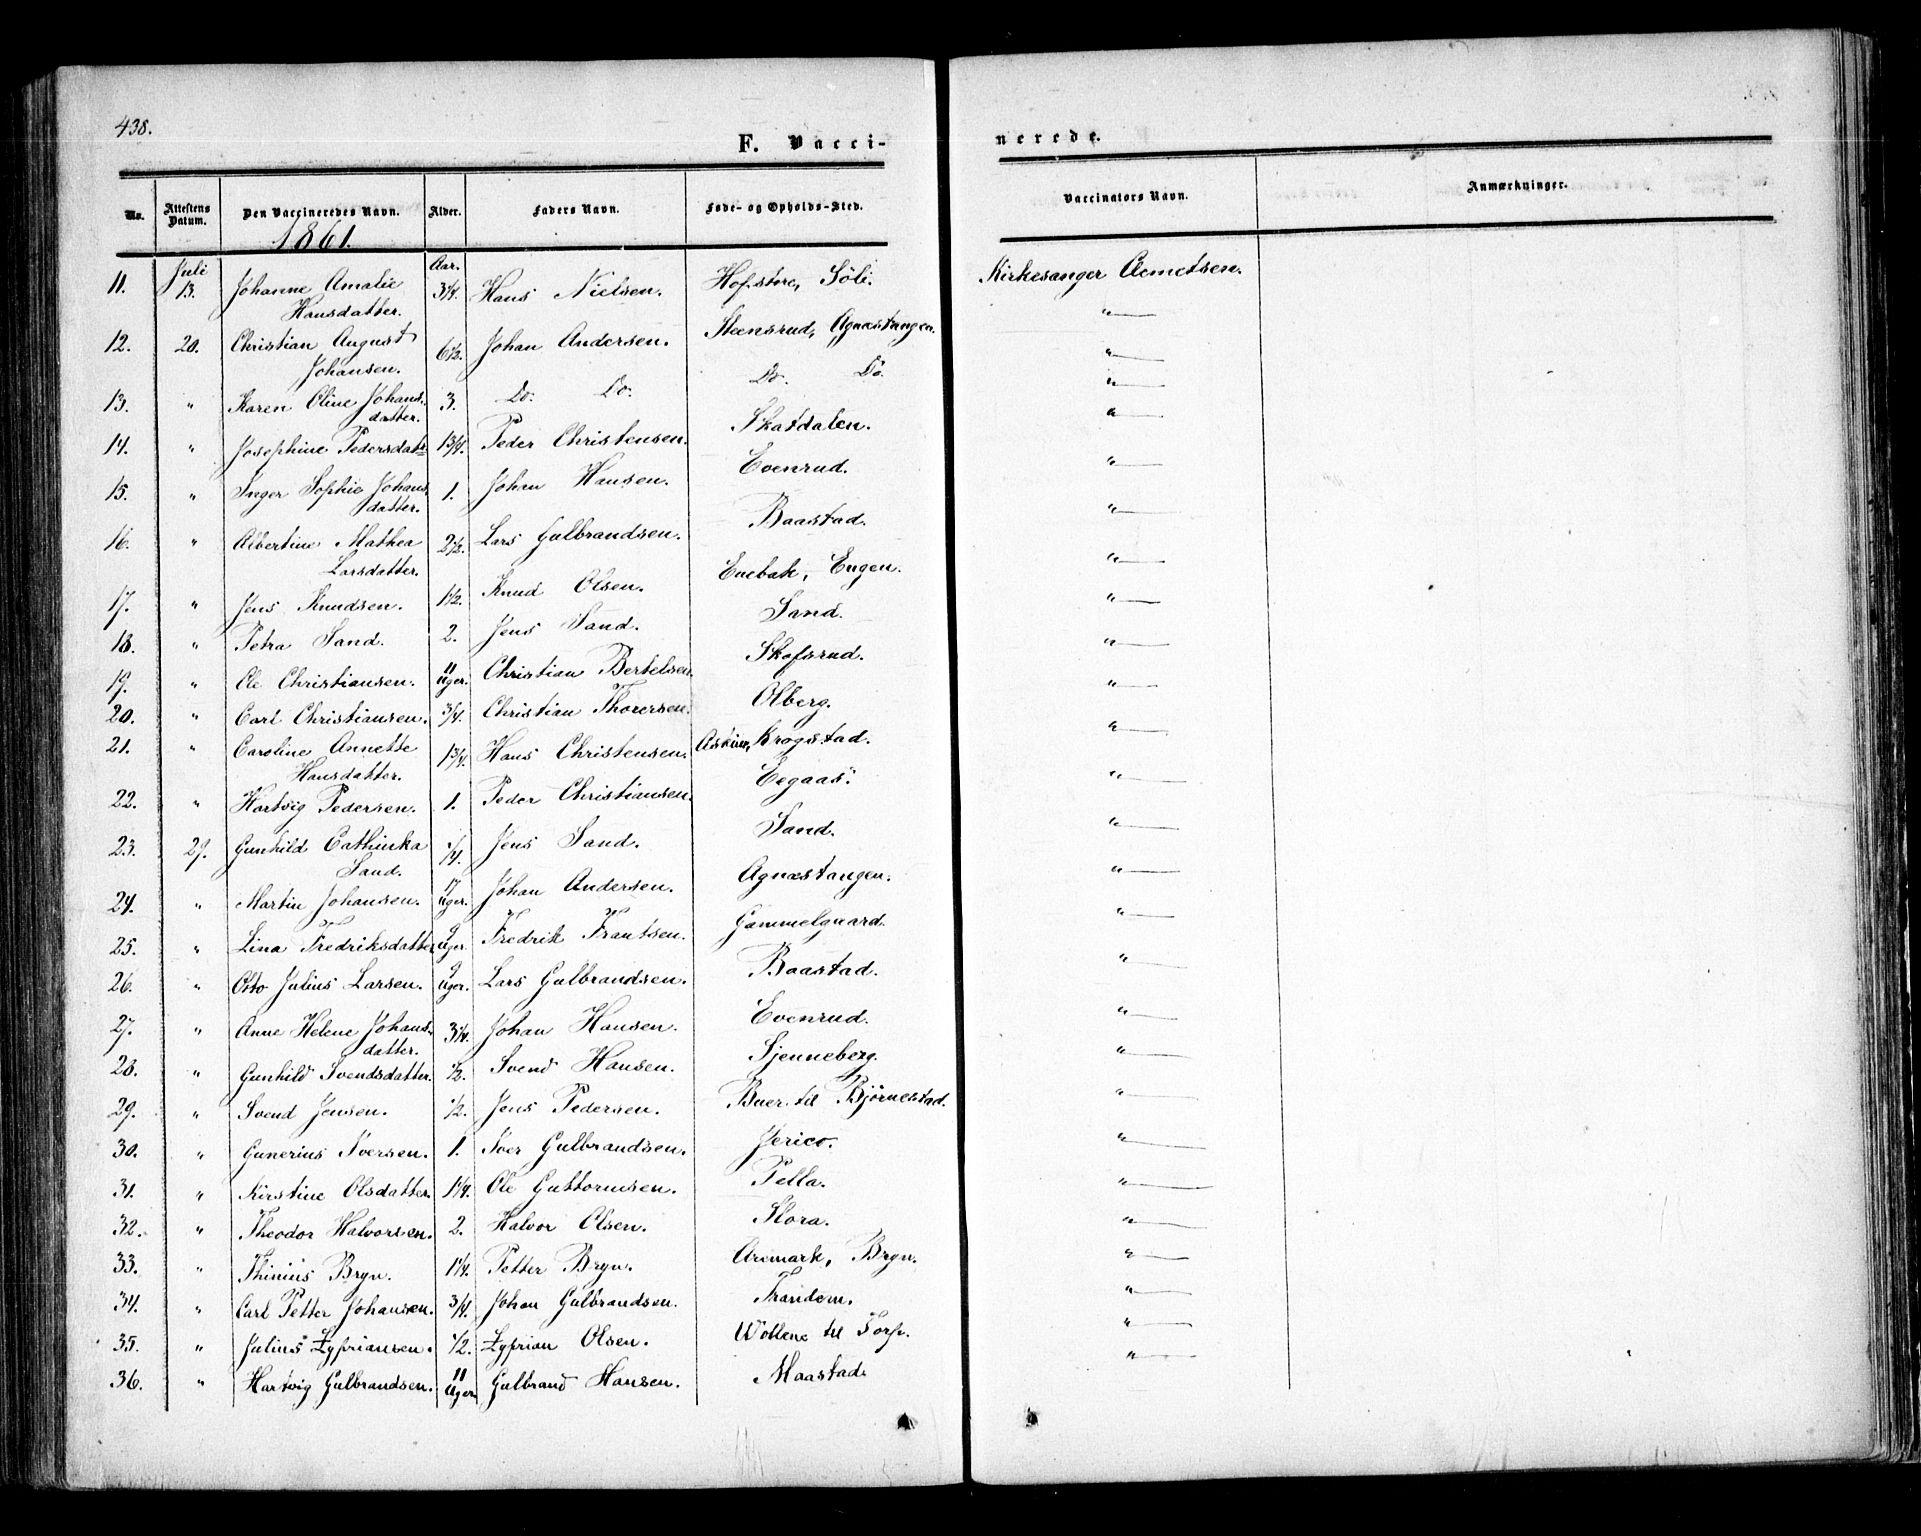 438.
F. Vacci-
nerede.
No. Attestens Datum. Den Vaccineredes Navn. Alder. Faders Navn. Føde- og Opholds-Sted. Vaccinators Navn. Anmærkninger.
1861.
Juli Aar.
11. 13. Johanne Amalie 3 1/4. Hans Nielsen. Hofstore, Söli. Kirkesanger Aemetsen.
Hansdatter.
12. 20. Christian August 6 1/2. Johan Andersen. Steensrud, Agnæstangen. "
Johansen.
13. " Karen Olive Johans- 3. Do. Do. Do. Do. "
datter.
14. " Josephine Pedersdatr 1 3/4. Peder Christensen. Skatdalen. "
15. " Inger Sophie Johans- 1. Johan Hansen. Evenrud. "
datter.
16. " Albertine Mathea 2 1/2. Lars Gulbrandsen. Baastad. "
Larsdatter.
17. " Jens Knudsen. 1 1/2. Knud Olsen. Enebak, Engen. "
18. " Petra Sand. 2. Jens Sand. Sand. "
19. " Ole Christiansen. 11 Uger. Christian Bertelsen. Skofsrud. "
20. " Carl Christiansen. 3/4. Christian Thorersen. Olberg. "
21. " Caroline Annette 1 3/4. Hans Christensen. Askim, Krogstad. "
Hansdatter.
22. " Hartvig Pedersen. 1. Peder Christiansen. Eegaas. "
23. 29. Gunhild Cathinka 1/4. Jens Sand. Sand. "
Sand.
24. " Martin Johansen. 17 Uger. Johan Andersen. Agnæstangen. "
25. " Lina Fredriksdatter 9 Uger. Fredrik Frantsen. Gammelgaard. "
26. " Otto Julius Larsen. 9 Uger. Lars Gulbrandsen. Baastad. "
27. " Anne Helene Johans- 3 1/4. Johan Hansen. Evenrud. "
datter.
28. " Gunhild Svendsdatter. 1/2. Svend Hansen. Sjenneberg. "
29. " Svend Jensen. 1/2. Jens Pedersen. Buer til Björnestad. "
30. " Gunerius Iversen. 1. Iver Gulbrandsen. Jerico. "
31. " Kirstine Olsdatter. 1 1/4. Ole Guttormsen. Pella. "
32. " Theodor Halvorsen. 2. Halvor Olsen. Slora. "
33. " Thinius Bryn. 1 1/4. Petter Bryn. Aremark, Bryn. "
34. " Carl Petter Johansen. 3/4. Johan Gulbrandsen. Trandem. "
35. " Julius Zypriansen. 1/2. Zyprian Olsen. Wollene til Torp. "
36. " Hartvig Gulbrandsen. 11 Uger. Gulbrand Hansen. Maastad. "